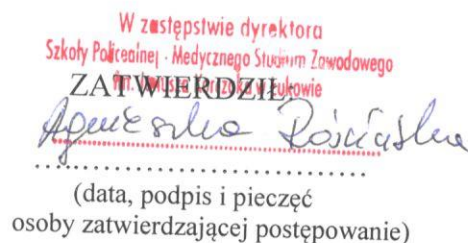 W zastępstwie dyrektora
Szkoły Policealnej - Medycznego Studium Zawodowego
im. Janusza Korczaka w Łukowie
ZATWIERDZIŁ:
Agnieszka
(data, podpis i pieczęć
osoby zatwierdzającej postępowanie)